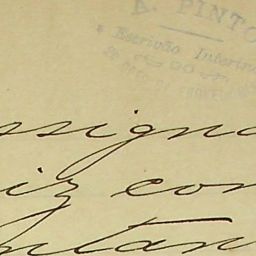 A. PINTO
Escrivão Interino
ssigna
iz con
ntan